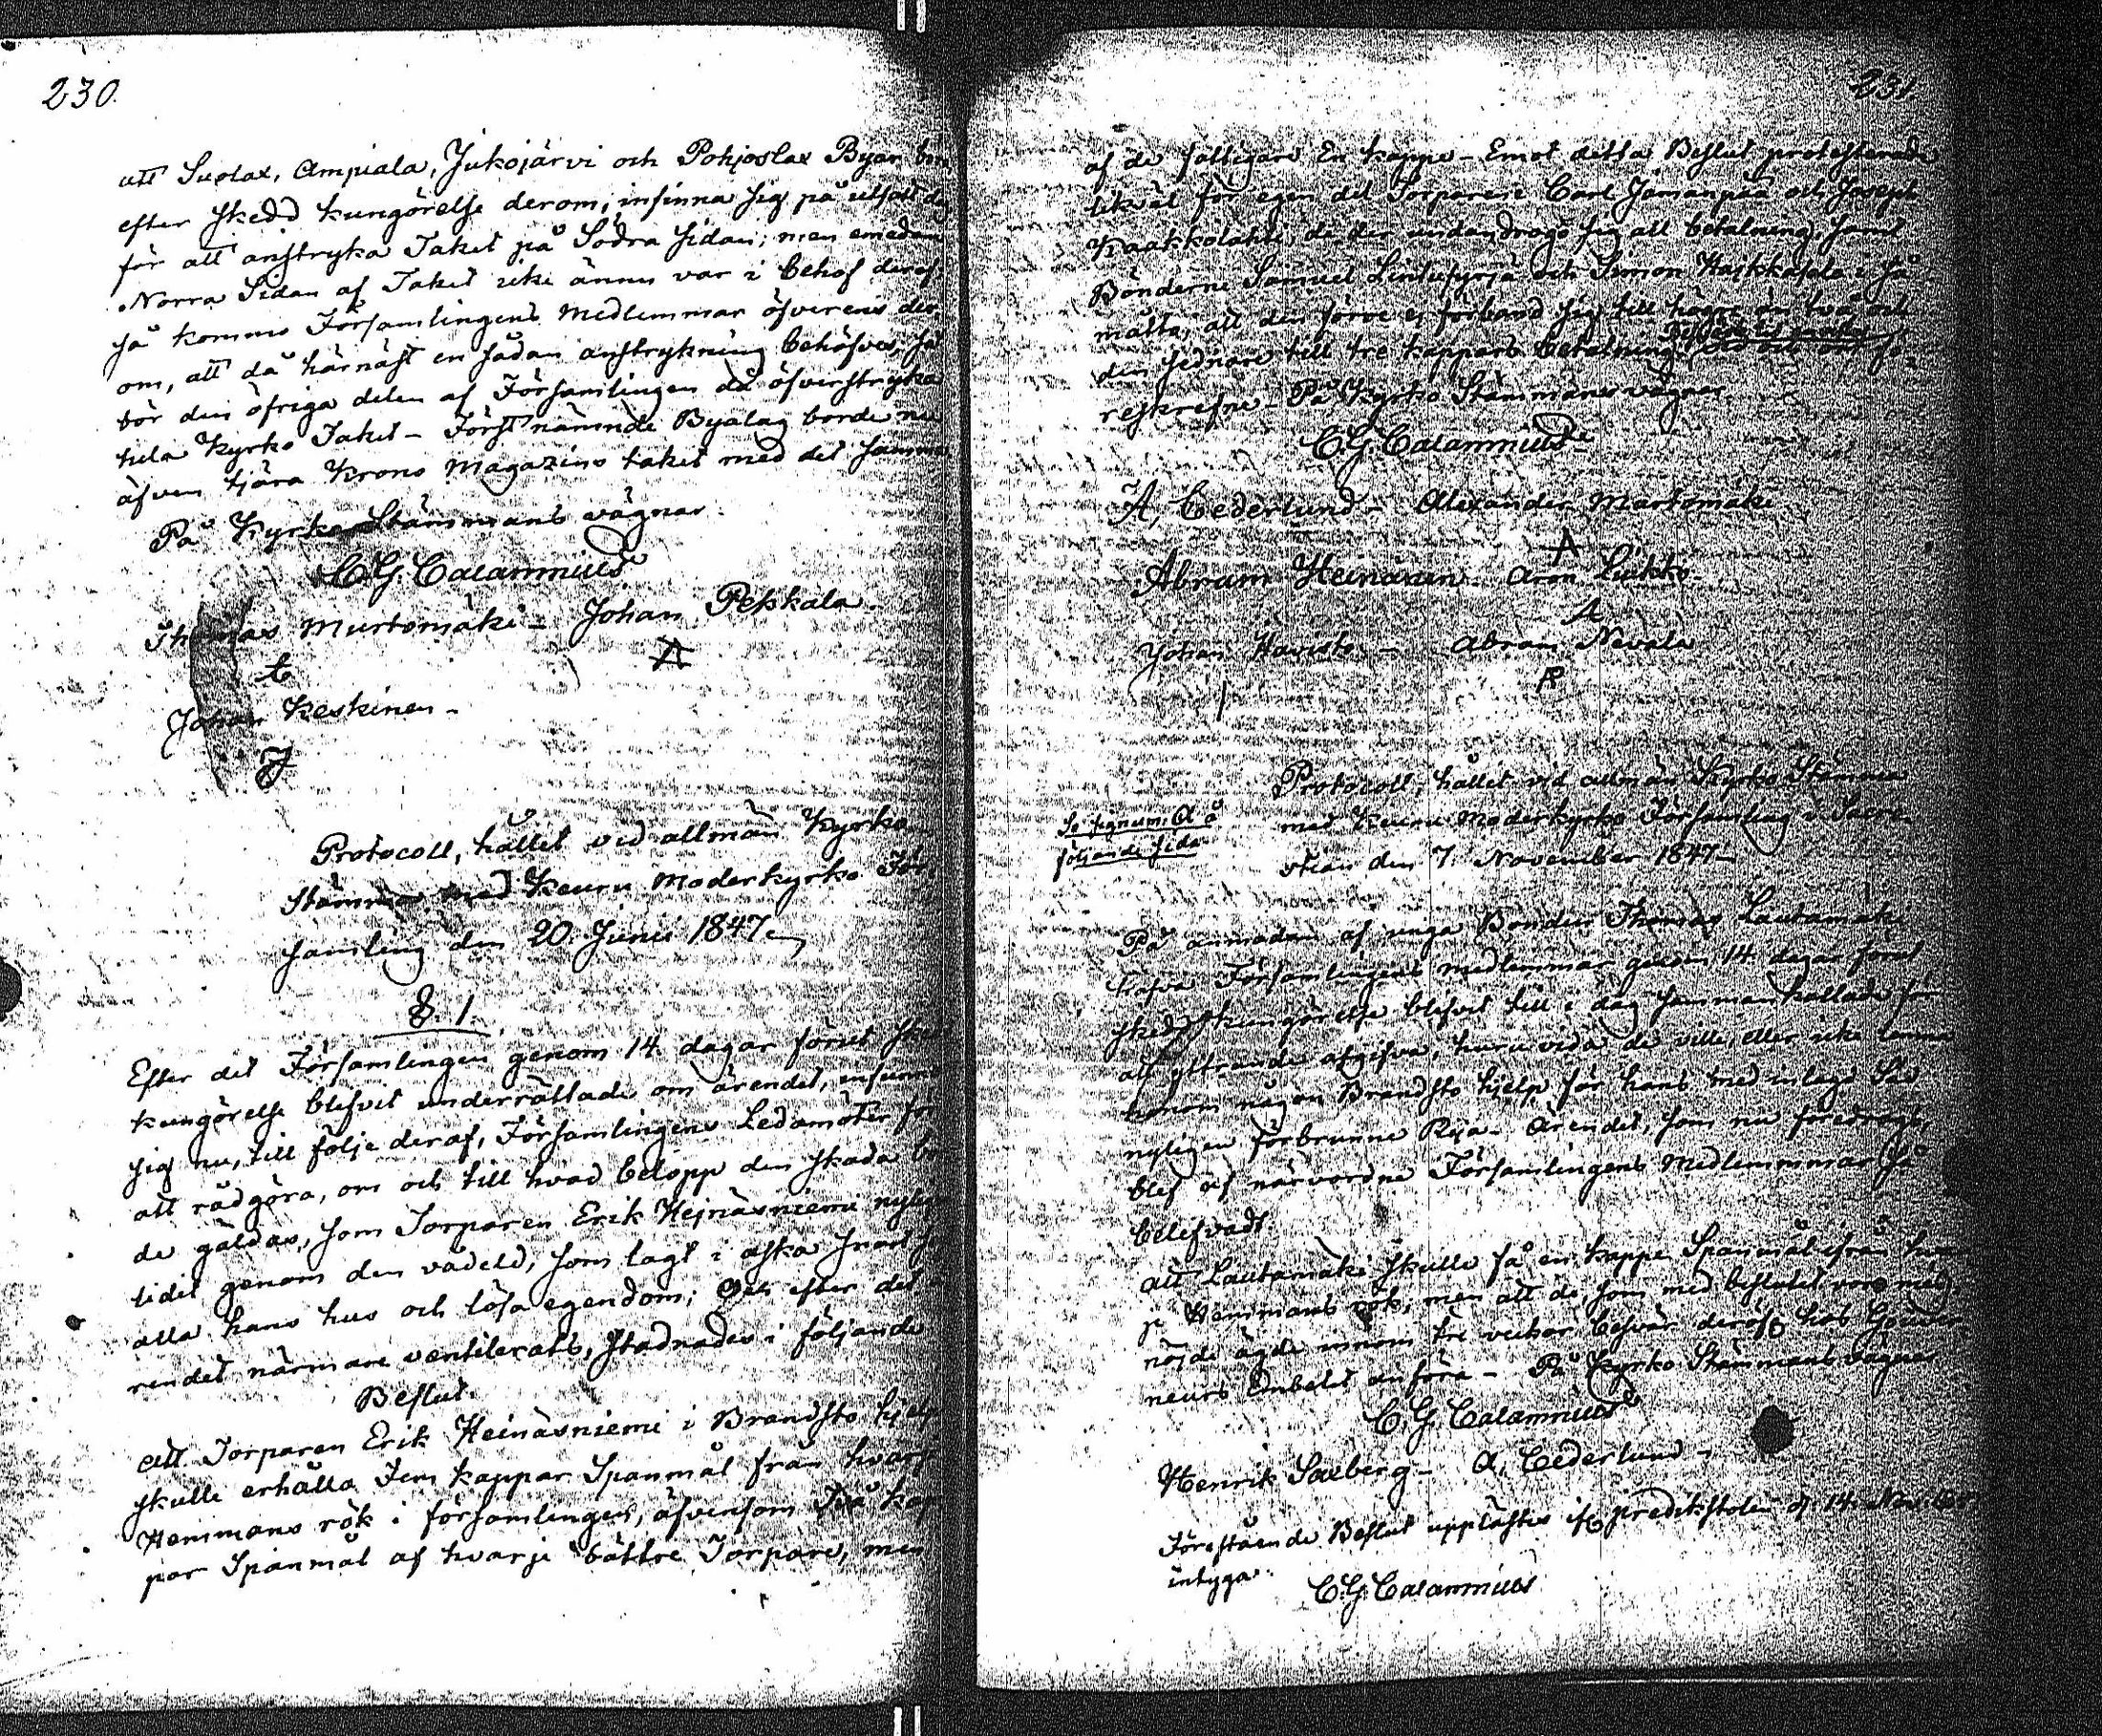 230.
att Suolax, Ampiala, Jukojärvi och Pohjoslax Byar
efter skedd kungörelse derom, infinna sig på utsatt
för att anstryka Taket på Södra sidan; men emedan
Norra Sidan af Taket icke ännu var i behof deraf;
så kommo Församlingens Medlemmar öfverens der
om, att då härnäst en sådan anstrykning behöfves, så
bör den öfriga delen af Församlingen då öfverstryka
hela Kyrko Taket - Först nämnde Byalag borde nu
äfven tjära Krono Magazins taket med det samma
På Kyrko Stämmans vägnar.
C.G. Calamnius
Thomas Murtomäki - Johan Pekkala.
Johan Keskinen -
Protocoll, hållet vid allmän Kyrko
Stämma med Keuru Moderkyrko För
samling den 20 Junii 1847
§. 1.
Efter det Församlingen genom 14 dagar förut
kungörelse blifvit underrättade om ärendet, infunno
sig nu, till följe deraf, Församlingens Ledamöter för
att rådgöra, om och till hvad belopp den skada
de gäldas, som Torparen Erik Heinäsniemi
lidit genom den vådeld, som lagt i aska
alla hans hus och lösa egendom; Och efter det
rendet närmare ventilerats, stadnades i följande
Beslut.
Att Torparen Erik Heinäsniemi i Brandsto hjelp
skulle erhålla Fem kappar Spanmål från hvarje
Hemmans rök i församlingen, äfvensom Två kap
par Spanmål af hvarje bättre Torpare, men
231
af de fattigare En kappe - Emot detta Beslut protesterade
likväl för egen del Torparene Carl Jämänpää och Joseph
Kaakkolahti, de der undandrogo sig all betalning, samt
Bönderne Samuel Lintusyrjä och Simon i så
måtto, att den förre ej förband sig till högre än två och
den sednare till tre kappars betalning
reskrefne - På Kyrko Stämmans vägnar
C.G. Calamnius
A, Cederlund - Alexander Martomäki
A
Abram Heinänen - Aron Liukko -
A
Johan Havisto - Abram Nevala
Protocoll, hållet vid allmän Kyrko Stämma
med Keuru Moderkyrko Församling i Sacri-
stian den 7 November 1847 -
Se signum A å
följande sida
På anmodan af unga Bonden Thomas Lautamäki
hafva Församlingens medlemmar genom 14 dagar förut
skedd kungörelse blifvit till i dag sammankallade för
att yttrande afgifva, huruvida de ville, eller icke lemna
honom någon Brandsto hjelp för hans med inlagd Säd
nyligen förbrunne Ria - Ärendet, som nu föredrogs,
blef af närvordne Församlingens Medlemmar så
belefvadt.
Att Lautamäki skulle få en kappe Spanmål ifrån
je Hemmans rök; men att de, som med beslutet voro miss
nöjde ägde innom tre veckor besvär deröfver hos Gouver-
neurs Embetet anföra - På Kyrko Stämmans vägnar
C.G. Calamnius
Henrik Saxberg - A, Cederlund -
Förestående Beslut upplästes ifr predikstolen d 14 Nov.
intygar.
C.G. Calamnius